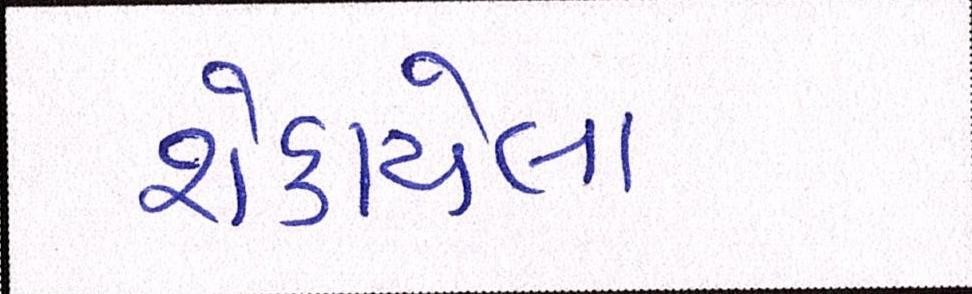 શેકાયેલા